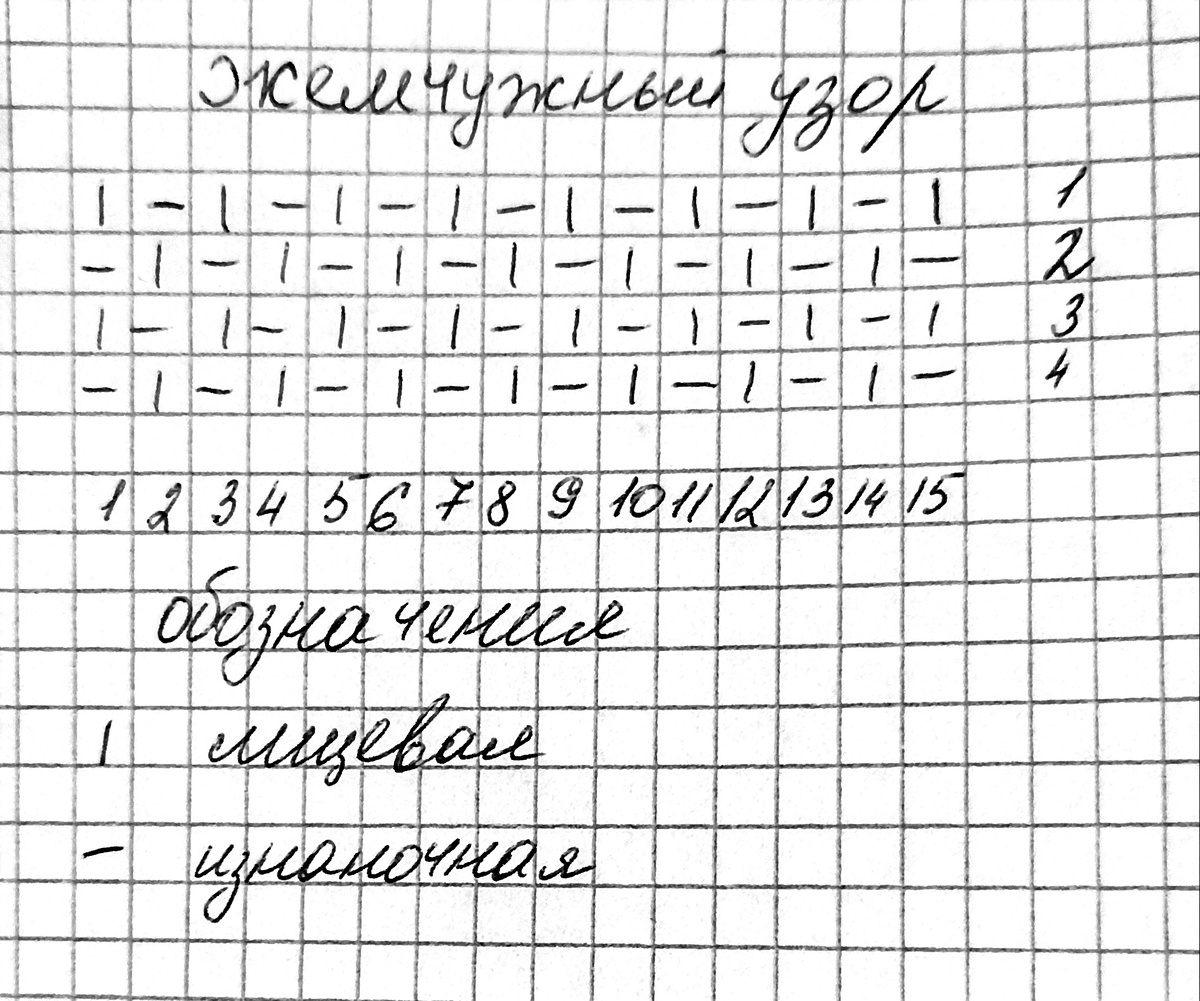 Жемчужный узор
| – | – | – | – | – | – | – | 1
– | – | – | – | – | – | – | – 2
| – | – | – | – | – | – | – | 3
– | – | – | – | – | – | – | – 4
1 2 3 4 5 6 7 8 9 10 11 12 13 14 15
обозначения
| лицевая
– изнаночная